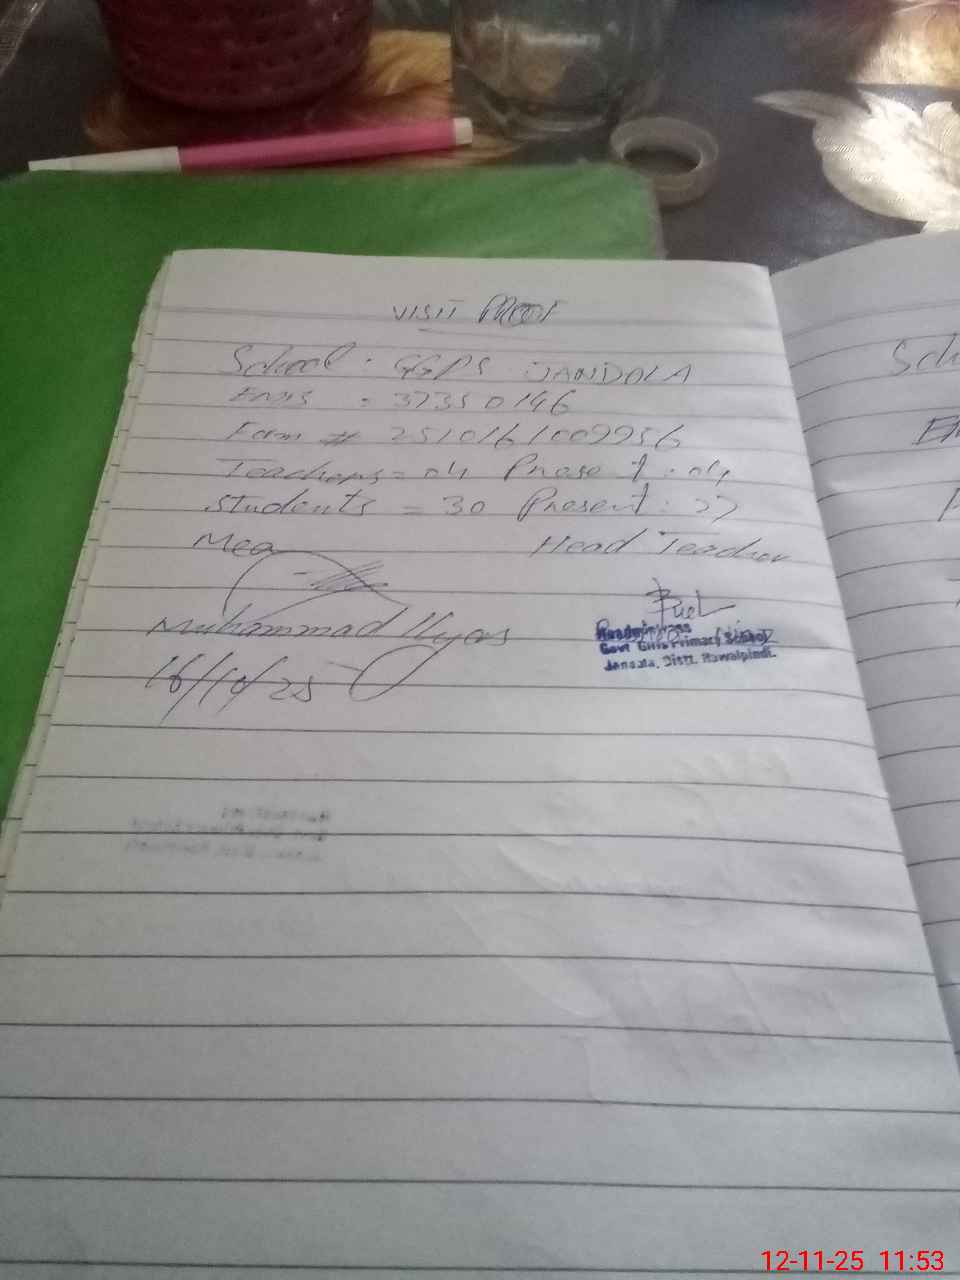 VISIT PROOF
School : GGPS JANDOLA
EMIS : 37350146
Form # 2510161009956
Teachers = 04 Present : 04
Students = 30 Present : 27
Mea Head Teacher
Muhammad Ilyas
16/10/25
Headmistress
Govt Girls Primary School
Jandala, Distt. Rawalpindi.
Sch
12-11-25 11:53